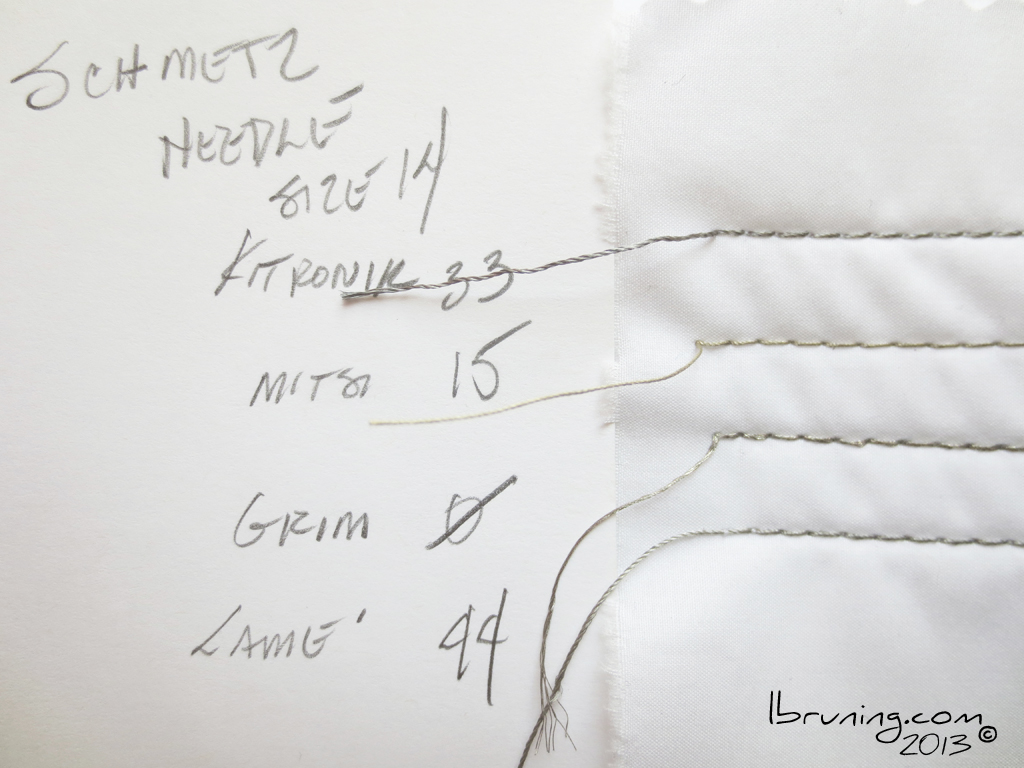 SCHMETZ
NEEDLE
SIZE 14
KITRONIK 33
MITSI 15
GRIM Ø
LAME' 44
lbruning.com
2013 ©